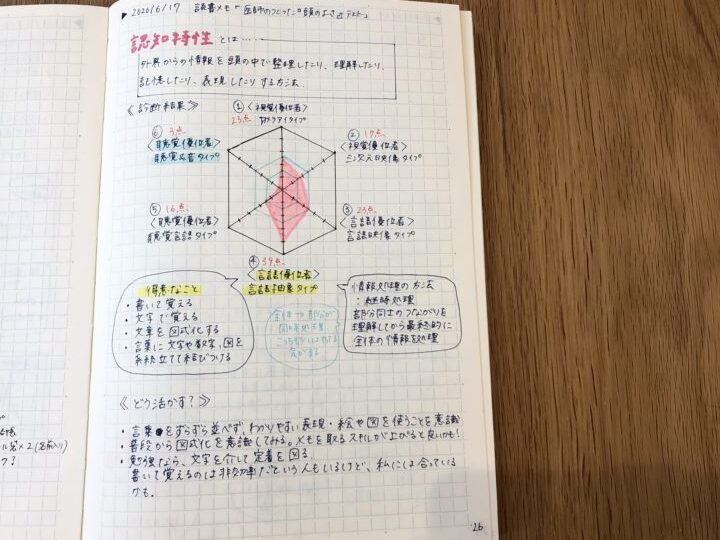 ▶ 2020/6/17 読書メモ「医師のつくった"頭のよさ"テスト」
認知特性とは……
外界からの情報を頭の中で整理したり、理解したり、
記憶したり、表現したりする方法
《診断結果》
① 〈視覚優位者〉
23点 カメラアイタイプ
⑥ 3点
〈聴覚優位者〉
聴覚&音タイプ
② 17点
〈視覚優位者〉
三次元映像タイプ
⑤ 16点
〈聴覚優位者〉
聴覚言語タイプ
③ 23点
〈言語優位者〉
言語映像タイプ
④ 39点
〈言語優位者〉
言語抽象タイプ
得意なこと
・書いて覚える
・文字で覚える
・文章を図式化する
・言葉に文字や数字、図を
系統立てて結びつける
全体や部分が
同時処理
こっちも
気がする
情報処理の方法
:継時処理
部分同士のつながりを
理解してから最終的に
全体の情報を処理
《どう活かす?》
・言葉をずらずら並べず、わかりやすい表現・絵や図を使うことを意識
・普段から図式化を意識してみる。メモを取るスキルが上がると良いかも!
・勉強なら、文字を介して定着を図る
書いて覚えるのは非効率だという人もいるけど、私には合っている
かも。
×2(名前入り)
26